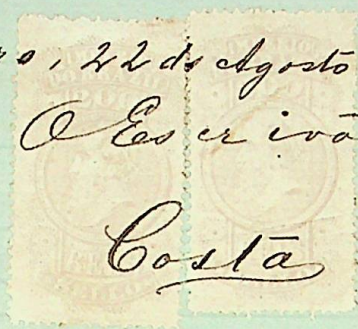 , 22 de Agosto
O Escrivã
Costa